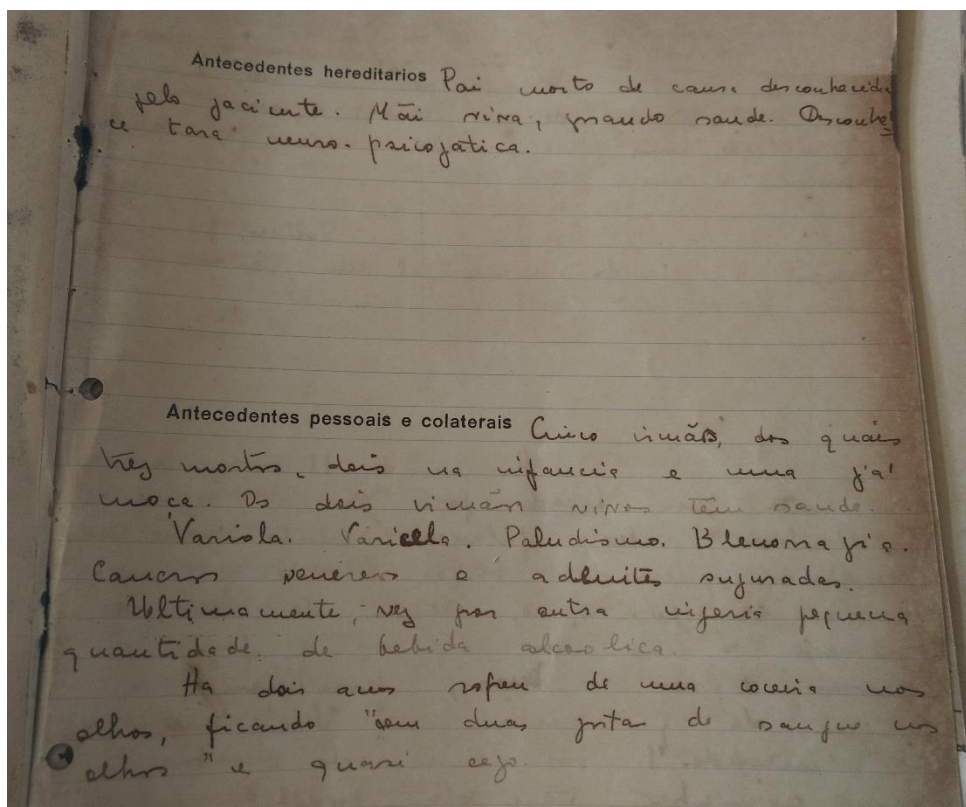 Antecedentes hereditarios Pai morto de causa desconhecida
pelo paciente. Mãi viva, gosando saude. Desconhe
ce tara neuro-psicopatica.
Antecedentes pessoais e colaterais Cinco irmãos, dos quais
trez mortos, dois na infancia e uma já
moça. Os dois irmãos vivos têm saude.
Variola. Varicela. Paludismo. Blenorragia.
Cancros venereos e adenites supuradas.
Ultimamente, vez por outra ingeria pequena
quantidade de bebida alcoolica.
Ha dois anos sofreu de uma coceira nos
olhos, ficando "com duas gotas de sangue nos
olhos" e quasi cego.